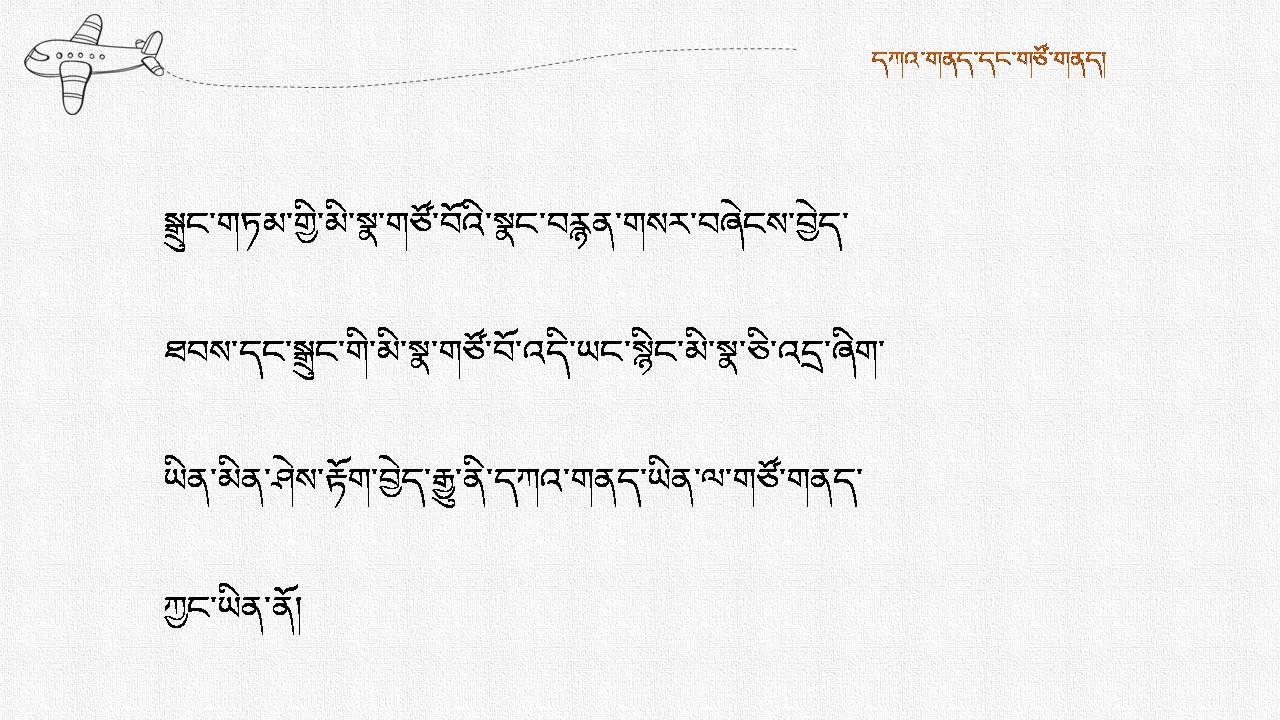 དཀའ་གནད་དང་གཙོ་གནད།
སྒྲུང་གཏམ་གྱི་མི་སྣ་གཙོ་བོའི་སྣང་བརྙན་གསར་བཞེངས་བྱེད་
ཐབས་དང་སྒྲུང་གི་མི་སྣ་གཙོ་བོ་འདི་ཡང་སྙིང་མི་སྣ་ཅི་འདྲ་ཞིག་
ཡིན་མིན་ཤེས་རྟོག་བྱེད་རྒྱུ་ནི་དཀའ་གནད་ཡིན་ལ་གཙོ་གནད་
ཀྱང་ཡིན་ནོ།